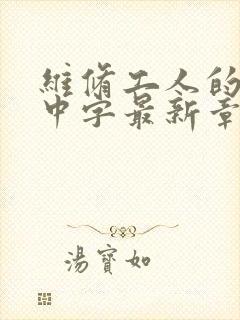 維脩工人的
中字最新章
湯寶如